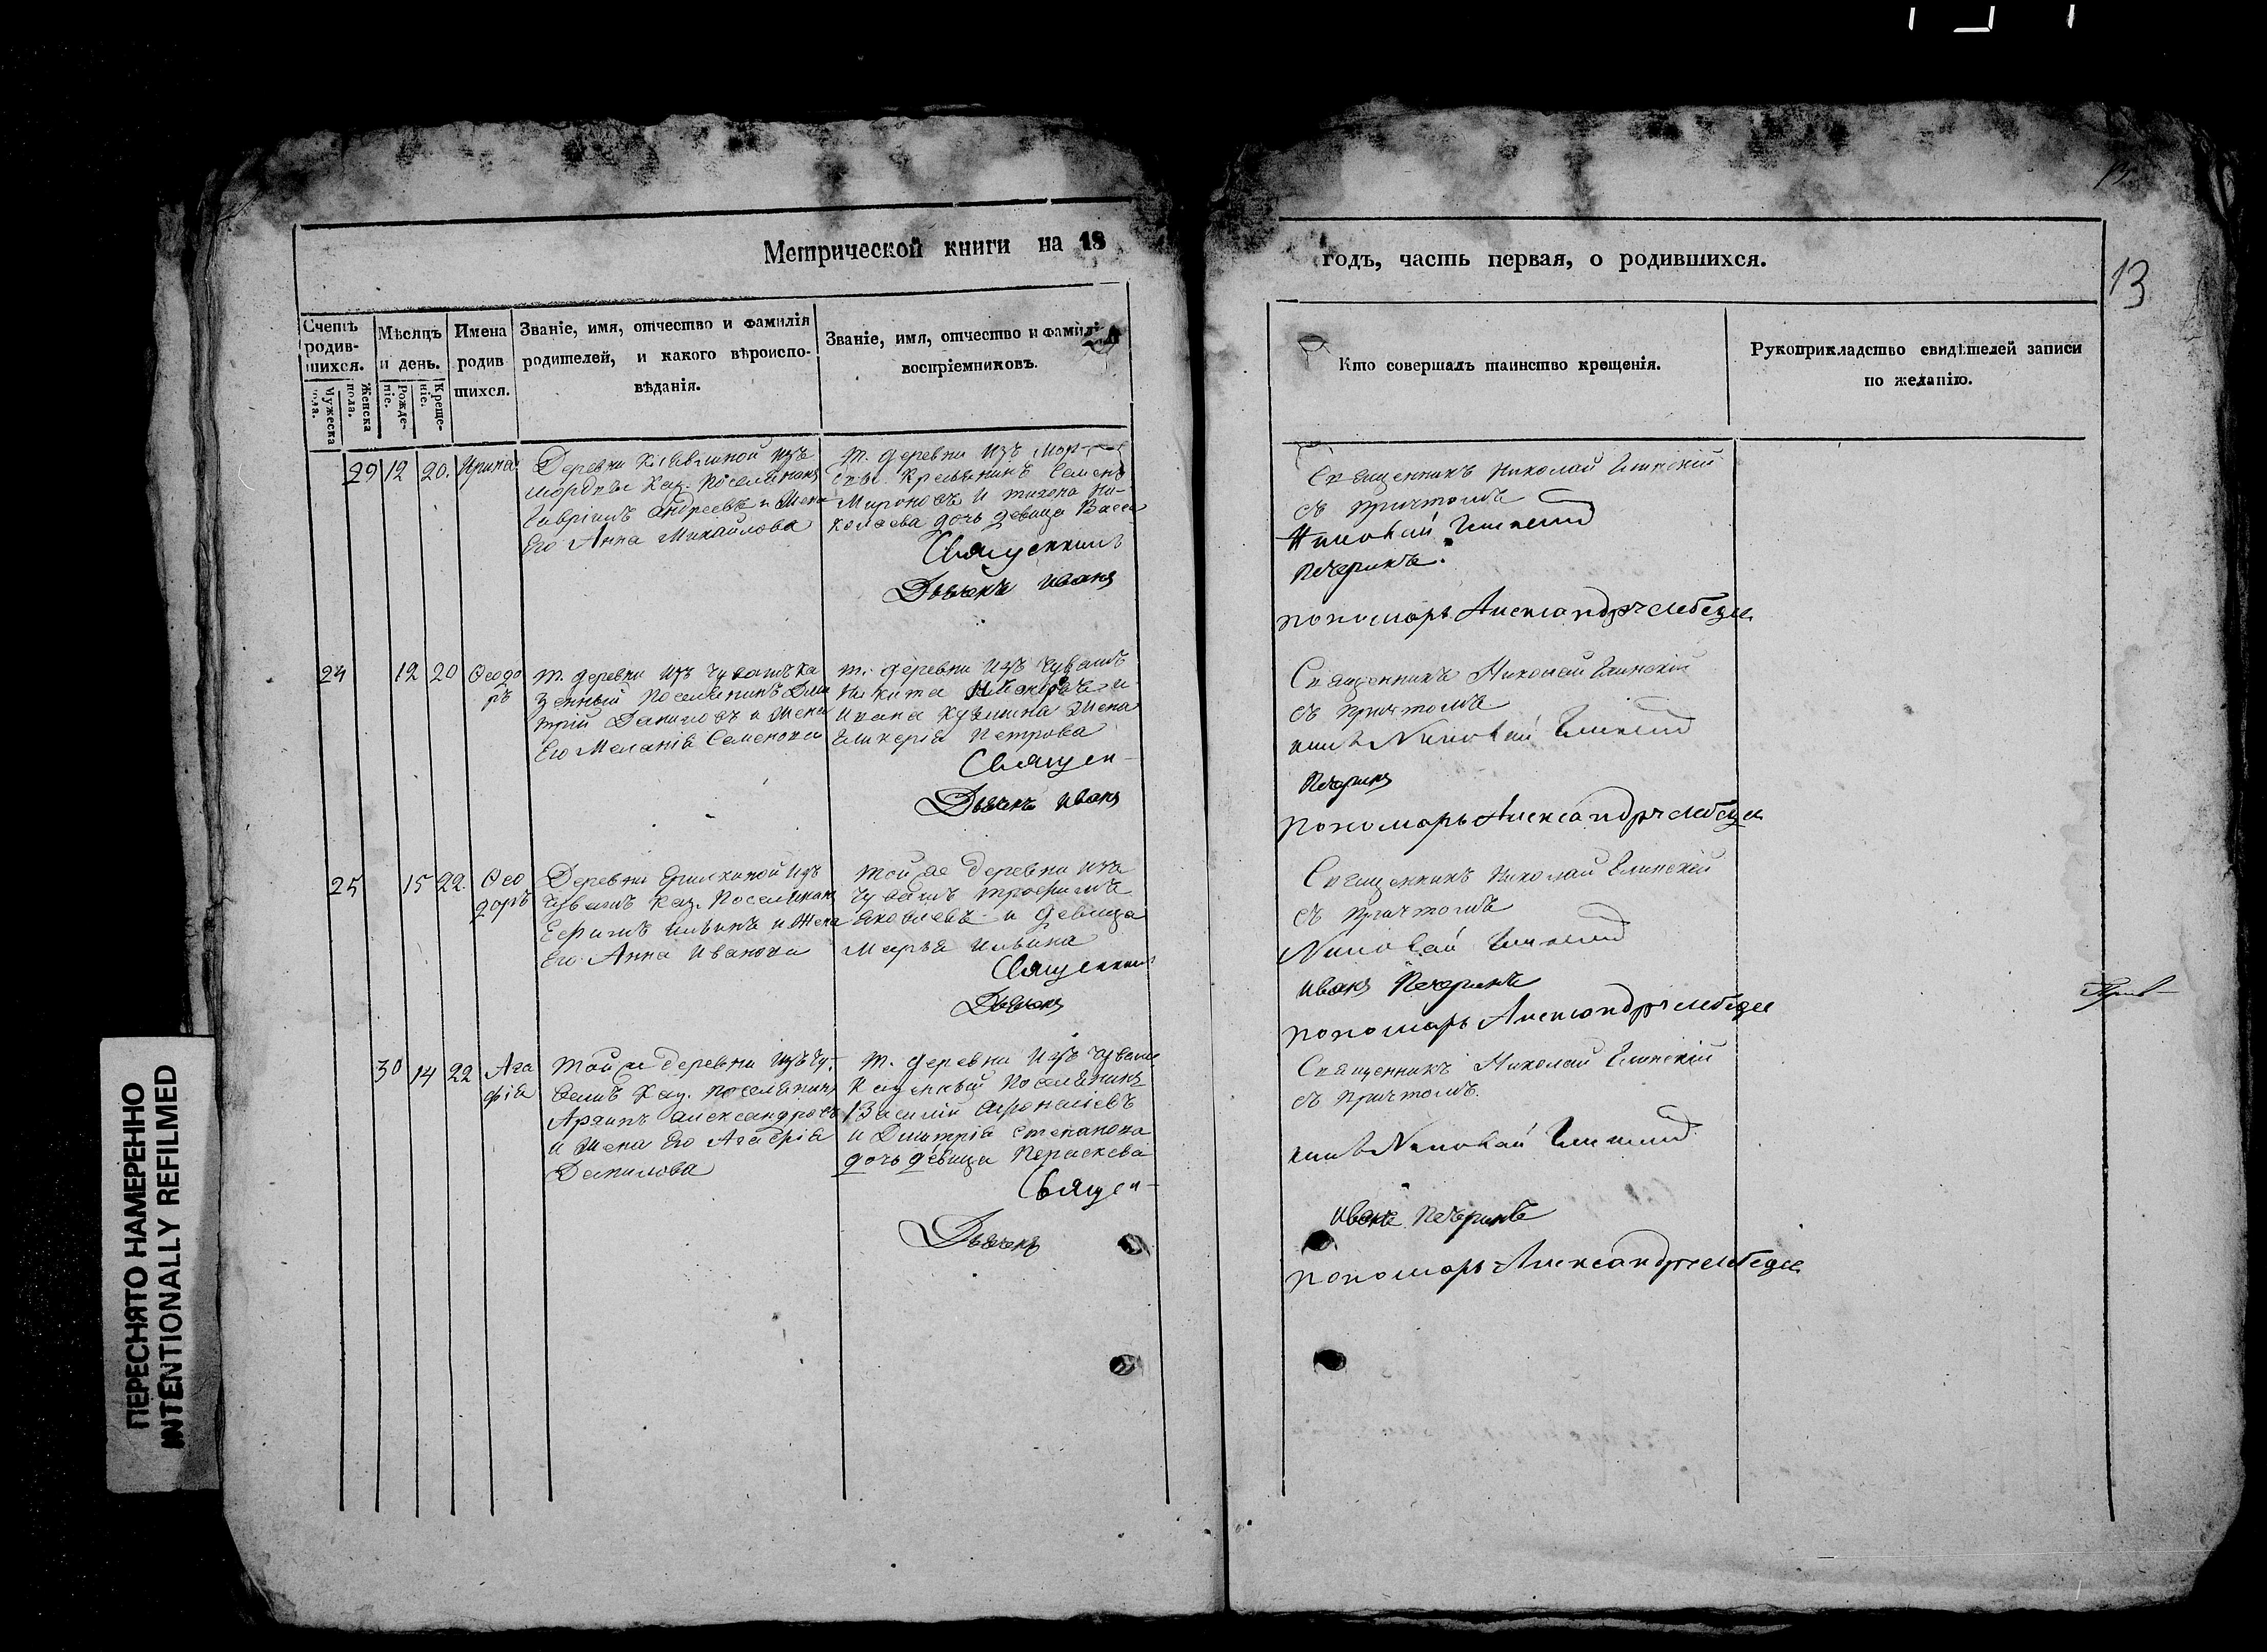 Метрической книги на 18
годъ, часть первая, о родившихся.
13
Счетъ родив-шихся.
Мужеска пола.
Женска пола.
Мѣсяцъ и день.
Рожде-ніе.
Креще-ніе.
Имена родив шихся.
Званіе, имя, отчество и фамилія родителей, и какого вѣроиспо-вѣданія.
Званіе, имя, отчество и фамилія воспріемниковъ.
Кто совершалъ таинство крещенія.
Рукоприкладство свидѣтелей записи по желанію.
29 12 20. Ирина
Деревни изъ
мордвы Каз. Поселянинъ
Гавріилъ Андреевъ и Жена
Его Анна Михайлова
т. деревни изъ Мор-
Крестьянинъ Семенъ
Мироновъ и Тихона Ни-
колаева дочь девица Васса
Священникъ
Дьячекъ Иванъ
Священникъ Николай Глинскій
съ причтомъ
Николай Глинскій
Печеринъ.
пономарь Александръ Лебедев
24 12 20 Ѳеодо
ръ
т. деревни изъ Чувашъ Ка
зенный Поселянинъ Дми
трій Даниловъ и Жена
Его Меланія Семенова
т. деревни изъ Чувашъ
Никита и
Ивана Кузмина Жена
Гликерія Петрова
Священ-
Дьячекъ Иванъ
Священникъ Николай Глинскій
съ причтомъ
никъ Николай Глинскій
Печеринъ
пономарь Александръ Лебедев
25 15 22. Ѳео
доръ
Деревни Ерилкиной изъ
Чувашъ Каз. Поселянинъ
Ефимъ Ильинъ и Жена
Его Анна Иванова
Той же деревни изъ
Чувашъ Трофимъ
Яковлевъ и девица
Марья Ильина
Священникъ
Дьячекъ
Священникъ Николай Глинскій
съ причтомъ
Николай Глинскій
Иванъ Печеринъ
пономарь Александръ Лебедев
30 14 22 Ага
фія
Той же деревни изъ Чу-
вашъ Каз. поселянинъ
Архипъ Александровъ
и Жена Его Агафія
Данилова
т. деревни изъ Чувашъ
Казенный Поселянинъ
Василій Афонасіевъ
и Дмитрія Степанова
дочь девица Параскева
Священ-
Дьячекъ
Священникъ Николай Глинскій
съ причтомъ.
никъ Николай Глинскій
Иванъ Печеринъ
пономарь Александръ Лебедев
ПЕРЕСНЯТО НАМЕРЕННО
INTENTIONALLY REFILMED